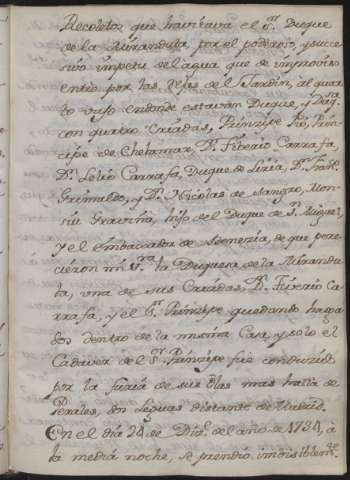 Recoletos que havitava el S.r Duque
de la Mirandula, por el poderoso, y succe
sivo impetu del agua que de improviso
entrò por las Rejas del Jardin, al quar
to vajo endonde estavan Duque, y Duq.
con quatro Criadas, Principe Pio, Prin
cipe de Chelamar, D.n Tiberio Carrafa,
D.n Lelio Carrafa, Duque de Liria, D.n
Grimaldo, y D.n Nicolas de Sangro, Mon
siu Gravina, hijo del Duque de S.n Miguel,
y el Embaxador de Venezia, de que pere
cieron mi S.ra la Duquesa de la Mirandu
la, una de sus Criadas, D.n Tiverio Ca
rrafa, y el S.r Principe quedando
dos dentro de la misma Casa y solo el
Cadaver del S.r Principe fue conducido
por la furia de sus olas mas hasta de
Perales, dos Leguas distante de Madrid.
En el dia 24 de Diz.e del año de 1734, à
la media noche, se prendiò